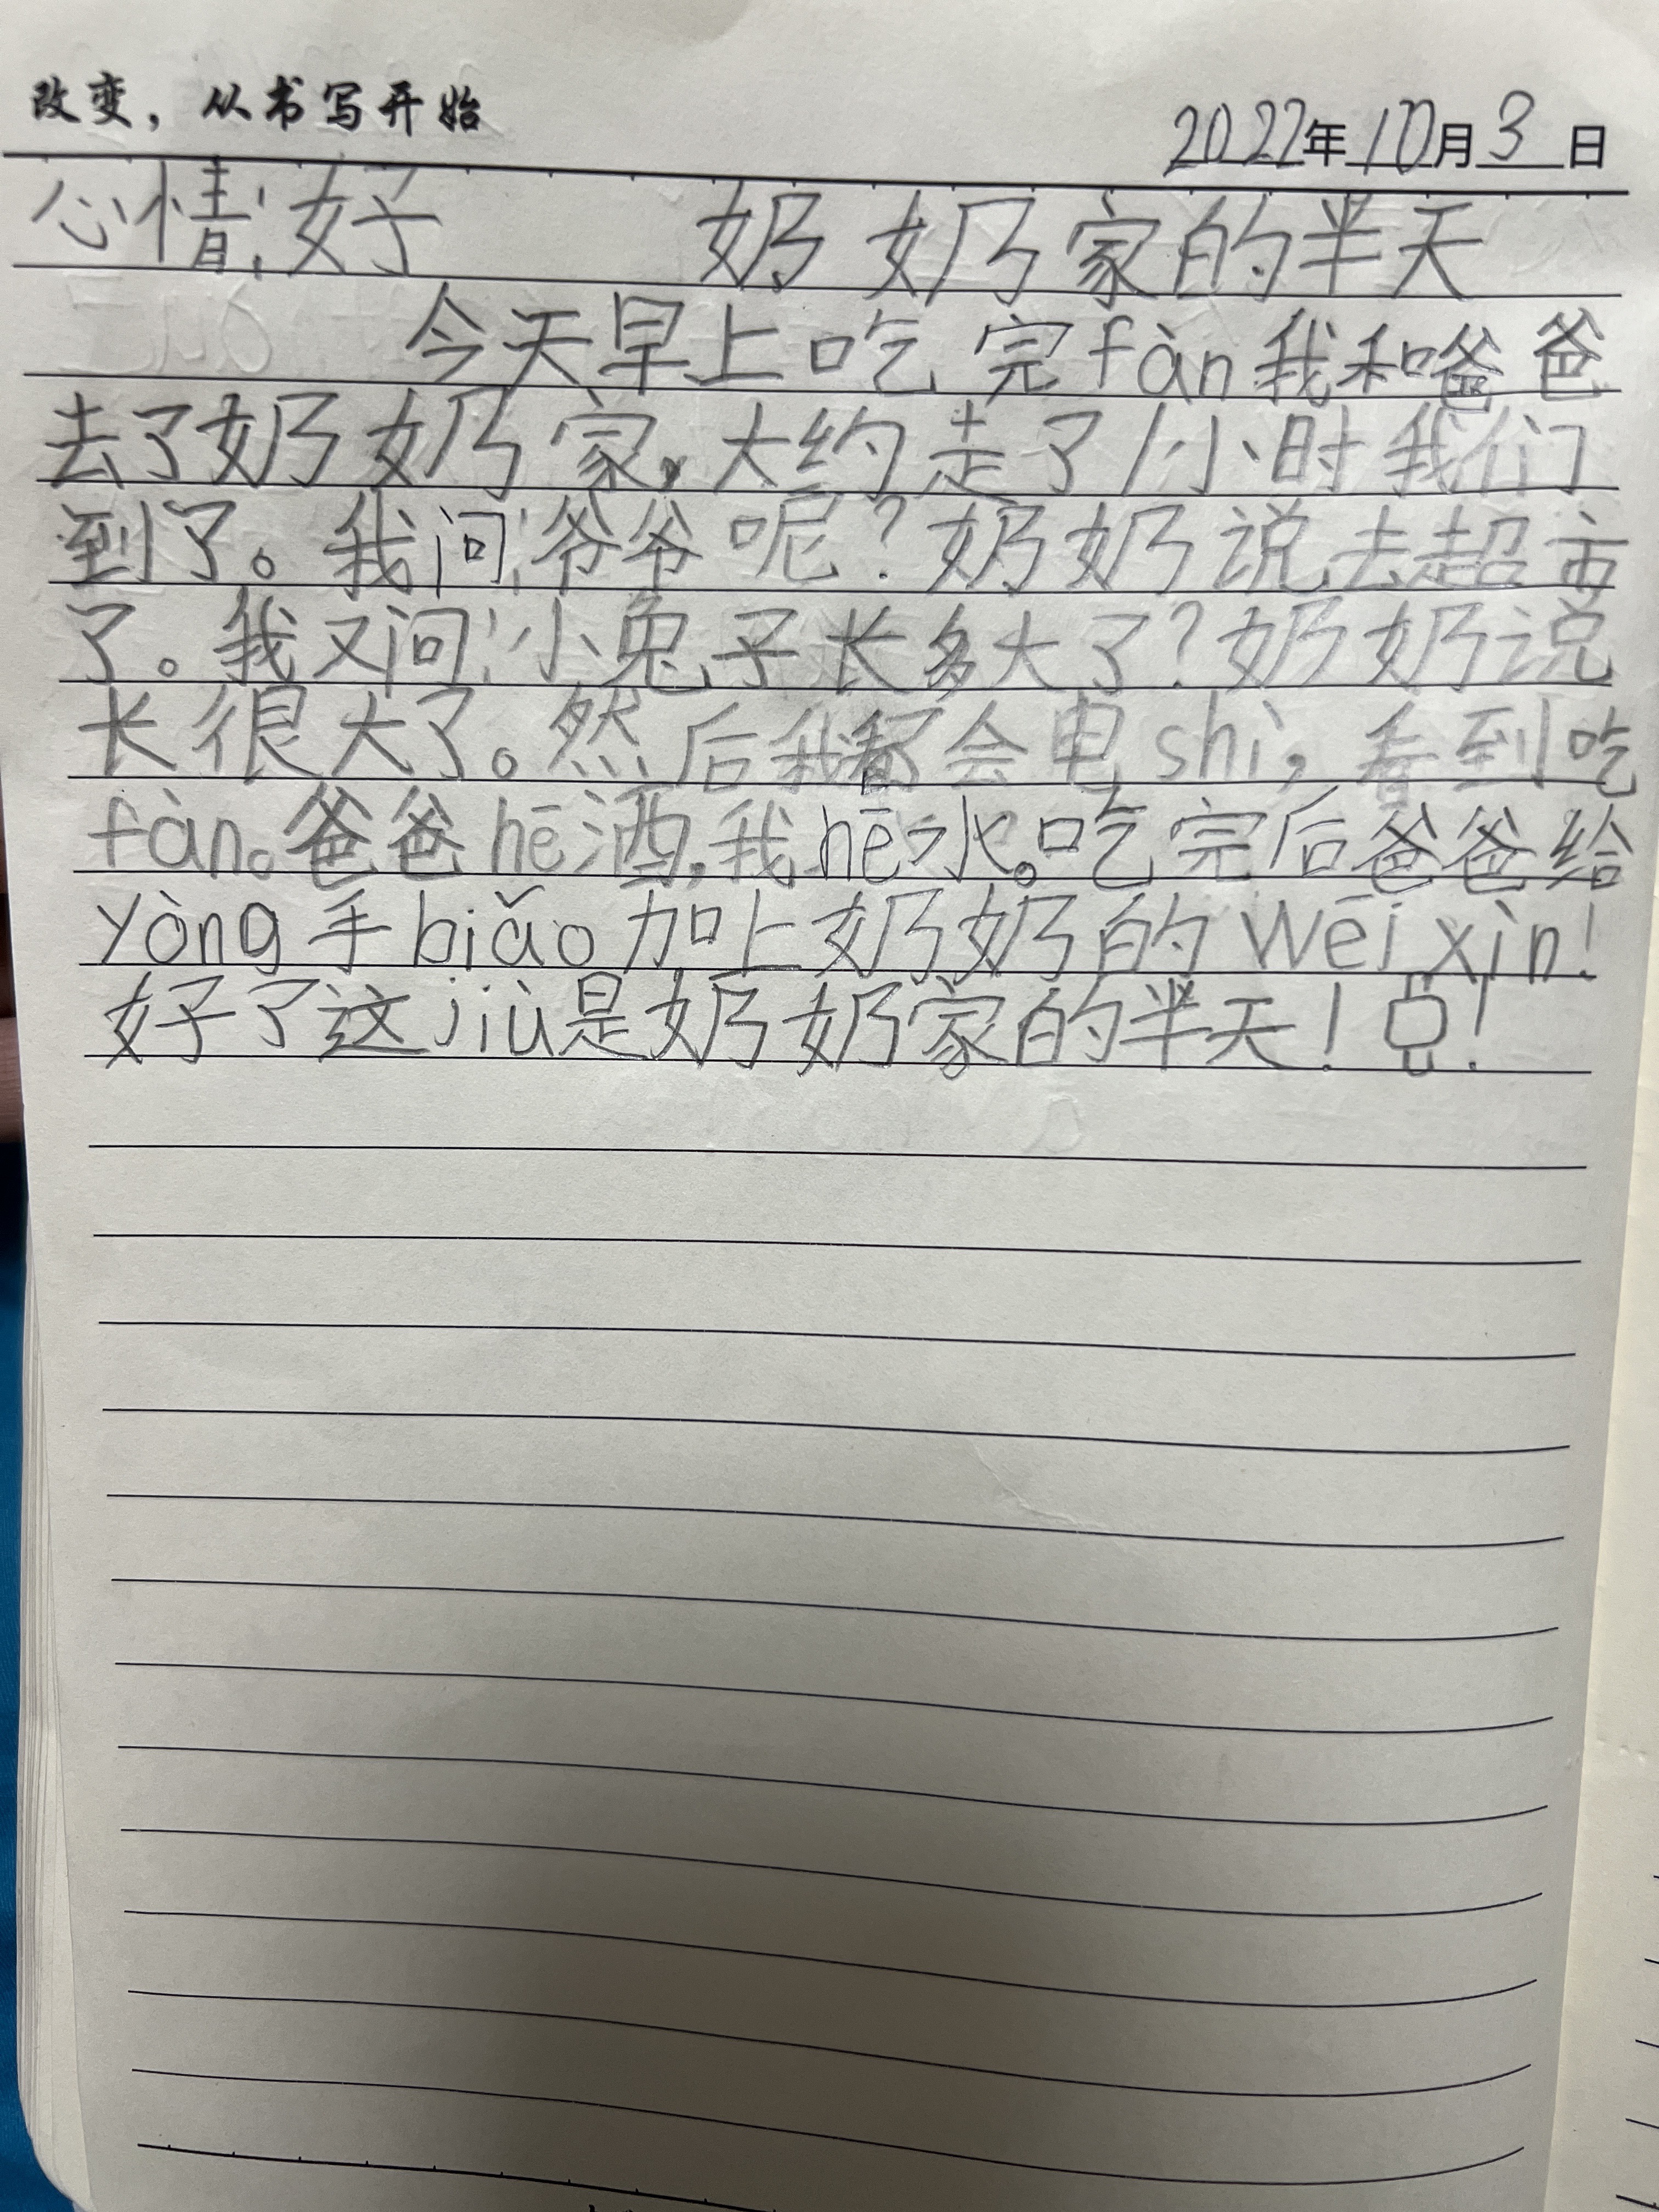 改变，从书写开始
2022年10月3日
心情:好 奶奶家的半天
今天早上吃完fàn我和爸爸
去了奶奶家，大约走了1小时我们
到了。我问:爷爷呢?奶奶说去超市
了。我又问:小兔子长多大了?奶奶说
长很大了。然后我都会电shì，看到吃
fàn。爸爸hē酒，我hē水。吃完后爸爸给
yòng手biǎo加上奶奶的Wēixìn!
好了这jiù是奶奶家的半天!